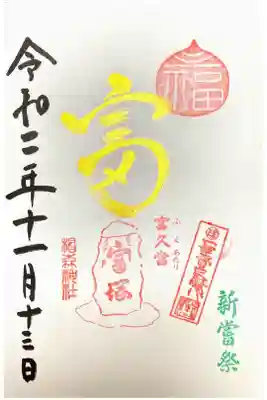 福
新嘗祭
富
ふくあたり
富久當
富塚
椙森神社
令和二年十一月十三日